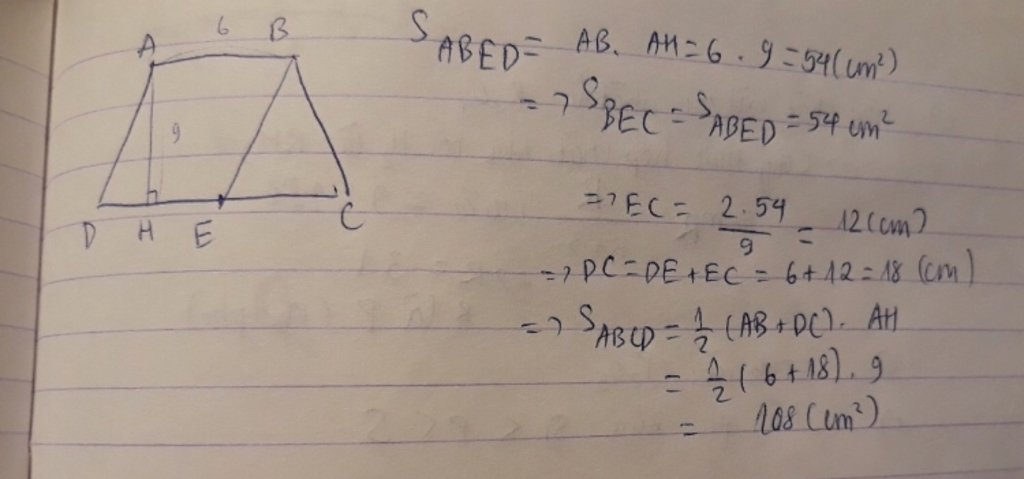 6
A B
9
D H E C
S_ABED = AB. AH = 6 . 9 = 54 (cm²)
=> S_BEC = S_ABED = 54 cm²
=> EC = 2.54/9 = 12 (cm)
=> DC = DE + EC = 6 + 12 = 18 (cm)
=> S_ABCD = 1/2 (AB + DC). AH
= 1/2 (6 + 18). 9
= 108 (cm²)